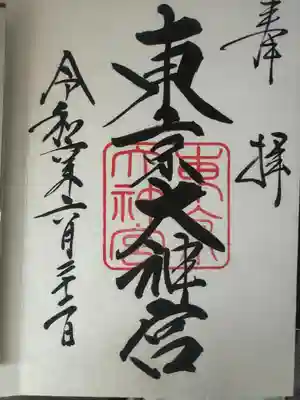 奉拝
東京大神宮
東京
大神宮
令和年六月二十一日